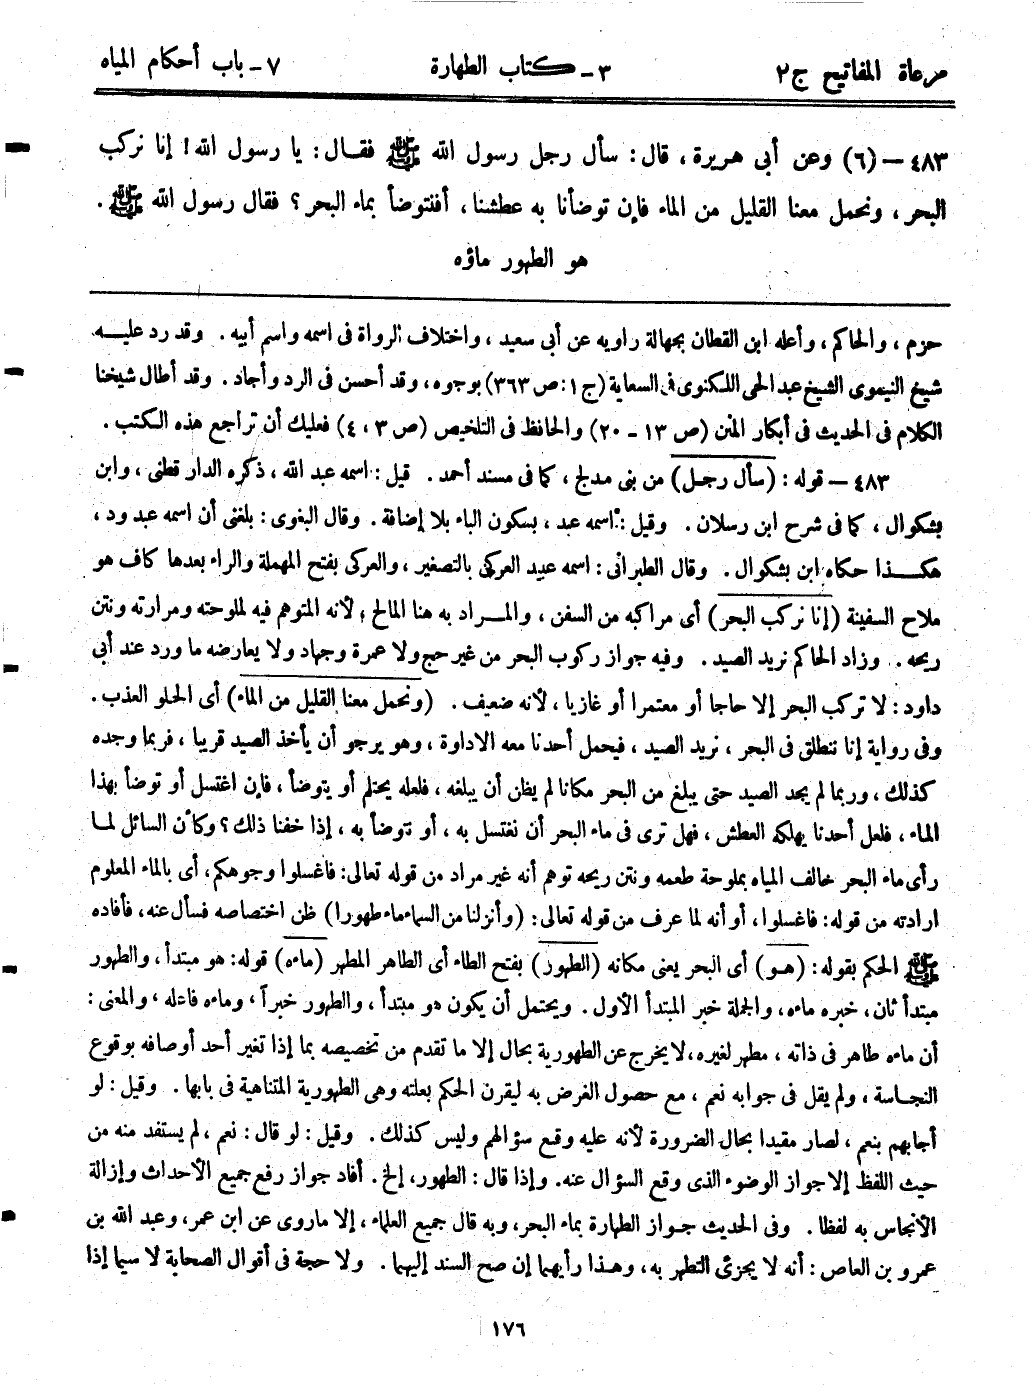 مرعاة المفاتيح ج٢ ٣- كتاب الطهارة ٧- باب أحكام المياه
٤٨٣ – (٦) وعن أبى هريرة، قال: سأل رجل رسول الله ﷺ فقال: يا رسول الله! إنا نركب
البحر، ونحمل معنا القليل من الماء فإن توضأنا به عطشنا، أفنتوضأ بماء البحر؟ فقال رسول الله ﷺ.
هو الطهور ماؤه
حزم، والحاكم، وأعله ابن القطان بجهالة راويه عن أبى سعيد، واختلاف الرواة فى اسمه واسم أبيه. وقد رد عليه
شيخ النيموى الشيخ عبد الحى اللكنوى فى السعاية (ج١: ص٣٦٣) بوجوه، وقد أحسن فى الرد وأجاد. وقد أطال شيخنا
الكلام فى الحديث فى أبكار المنن (ص ١٣ – ٢٠) والحافظ فى التلخيص (ص ٣، ٤) فعليك أن تراجع هذه الكتب.
٤٨٣ – قوله: (سأل رجل) من بنى مدلج، كما فى مسند أحمد. قيل: اسمه عبد الله، ذكره الدار قطنى، وابن
بشكوال، كما فى شرح ابن رسلان. وقيل: اسمه عبد، بسكون الباء بلا إضافة. وقال البغوى: بلغنى أن اسمه عبد ود،
هكذا حكاه ابن بشكوال. وقال الطبرانى: اسمه عبيد العركى بالتصغير، والعركى بفتح المهملة والراء بعدها كاف هو
ملاح السفينة (إنا نركب البحر) أى مراكبه من السفن، والمراد به هنا المالح؛ لأنه المتوهم فيه لملوحته ومرارته ونتن
ريحه. وزاد الحاكم نريد الصيد. وفيه جواز ركوب البحر من غير حج ولا عمرة وجهاد ولا يعارضه ما ورد عند أبى
داود: لا تركب البحر إلا حاجا أو معتمرا أو غازيا، لأنه ضعيف. (ونحمل معنا القليل من الماء) أى الحلو العذب.
وفى رواية إنا ننطلق فى البحر، نريد الصيد، فيحمل أحدنا معه الاداوة، وهو يرجو أن يأخذ الصيد قريبا، فربما وجده
كذلك، وربما لم يجد الصيد حتى يبلغ من البحر مكانا لم يظن أن يبلغه، فلعله يحتلم أو يتوضأ، فإن اغتسل أو توضأ بهذا
الماء، فلعل أحدنا يهلكه العطش، فهل ترى فى ماء البحر أن نغتسل به، أو نتوضأ به، إذا خفنا ذلك؟ وكأن السائل لما
رأى ماء البحر خالف المياه بملوحة طعمه ونتن ريحه توهم أنه غير مراد من قوله تعالى: فاغسلوا وجوهكم، أى بالماء المعلوم
ارادته من قوله: فاغسلوا، أو أنه لما عرف من قوله تعالى: (وأنزلنا من السماء ماء طهورا) ظن اختصاصه فسأل عنه، فأفاده
ﷺ الحكم بقوله: (هو) أى البحر يعنى مكانه (الطهور) بفتح الطاء أى الطاهر المطهر (ماءه) قوله: هو مبتدأ، والطهور
مبتدأ ثان، خبره ماءه، والجملة خبر المبتدأ الأول. ويحتمل أن يكون هو مبتدأ، والطهور خبراً، وماءه فاعله، والمعنى:
أن ماءه طاهر فى ذاته، مطهر لغيره، لا يخرج عن الطهورية بحال إلا ما تقدم من تخصيصه بما إذا تغير أحد أوصافه بوقوع
النجاسة، ولم يقل فى جوابه نعم، مع حصول الغرض به ليقرن الحكم بعلته وهى الطهورية المتناهية فى بابها. وقيل: لو
أجابهم بنعم، لصار مقيدا بحال الضرورة لأنه عليه وقع سؤالهم وليس كذلك. وقيل: لو قال: نعم، لم يستفد منه من
حيث اللفظ إلا جواز الوضوء الذى وقع السؤال عنه. وإذا قال: الطهور، إلخ. أفاد جواز رفع جميع الأحداث وإزالة
الأنجاس به لفظا. وفى الحديث جواز الطهارة بماء البحر، وبه قال جميع العلماء، إلا ما روى عن ابن عمر، وعبد الله بن
عمرو بن العاص: أنه لا يجزئ التطهر به، وهذا رأيهما إن صح السند إليهما. ولا حجة فى أقوال الصحابة لا سيما إذا
١٧٦